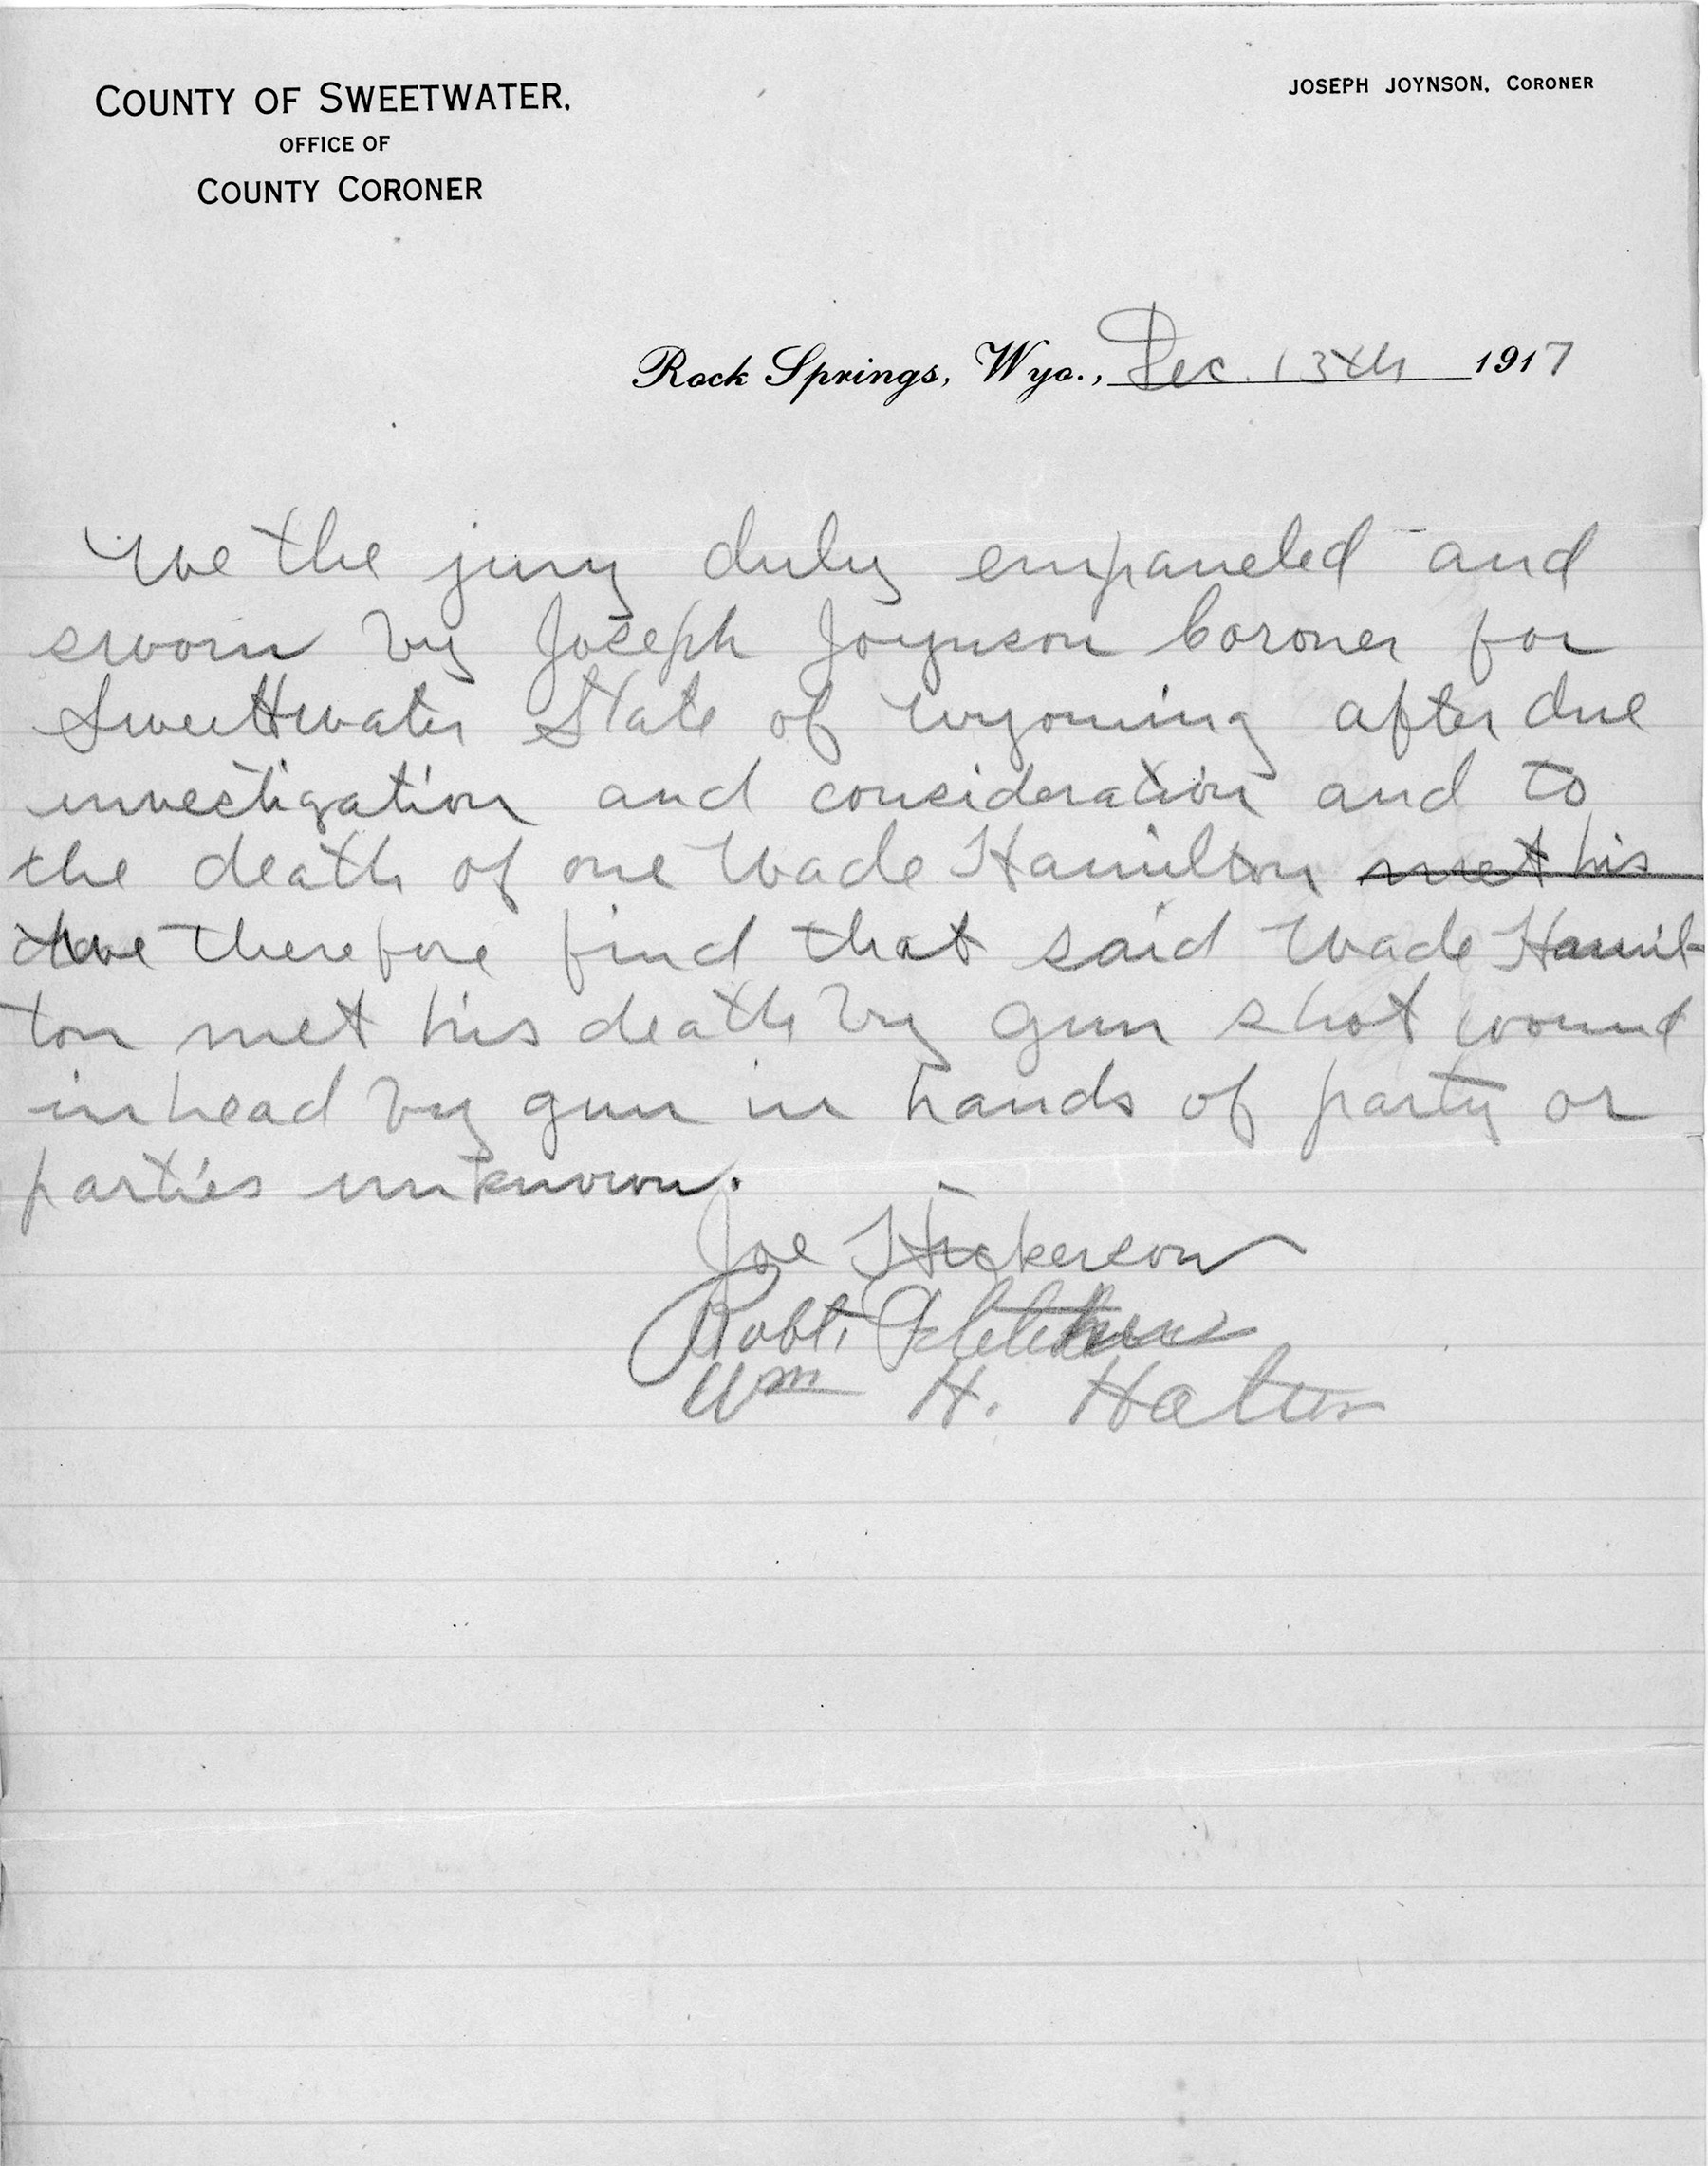 COUNTY OF SWEETWATER,
OFFICE OF
COUNTY CORONER
JOSEPH JOYNSON, CORONER
Rock Springs, Wyo., Dec. 13th 1917
We the jury duly empaneled and
sworn by Joseph Joynson Coroner for
Sweettwater State of Wyoming after due
investigation and consideration and to
the death of one Wade Hamilton met his
we therefore find that said Wade Hamil-
ton met his death by gun shot wound
in head by gun in hands of party or
parties unknown.
Joe Hickerson
Robt.
Wm H.